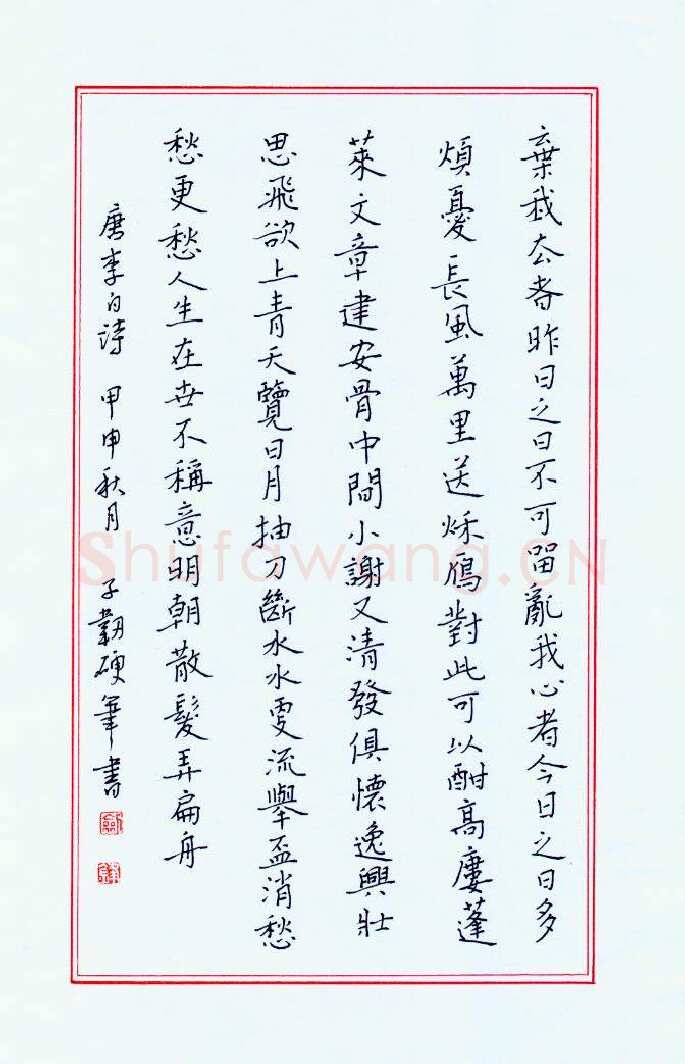 棄我去者昨日之日不可留亂我心者今日之日多
煩憂長風萬里送秌鴈對此可以酣高廔蓬
萊文章建安骨中間小謝又清發俱懷逸興壯
思飛欲上青天覽日月抽刀斷水水更流舉盃消愁
愁更愁人生在世不稱意明朝散髮弄扁舟
唐李白詩 甲申秋月 子韌硬筆書
Shufawang.CN